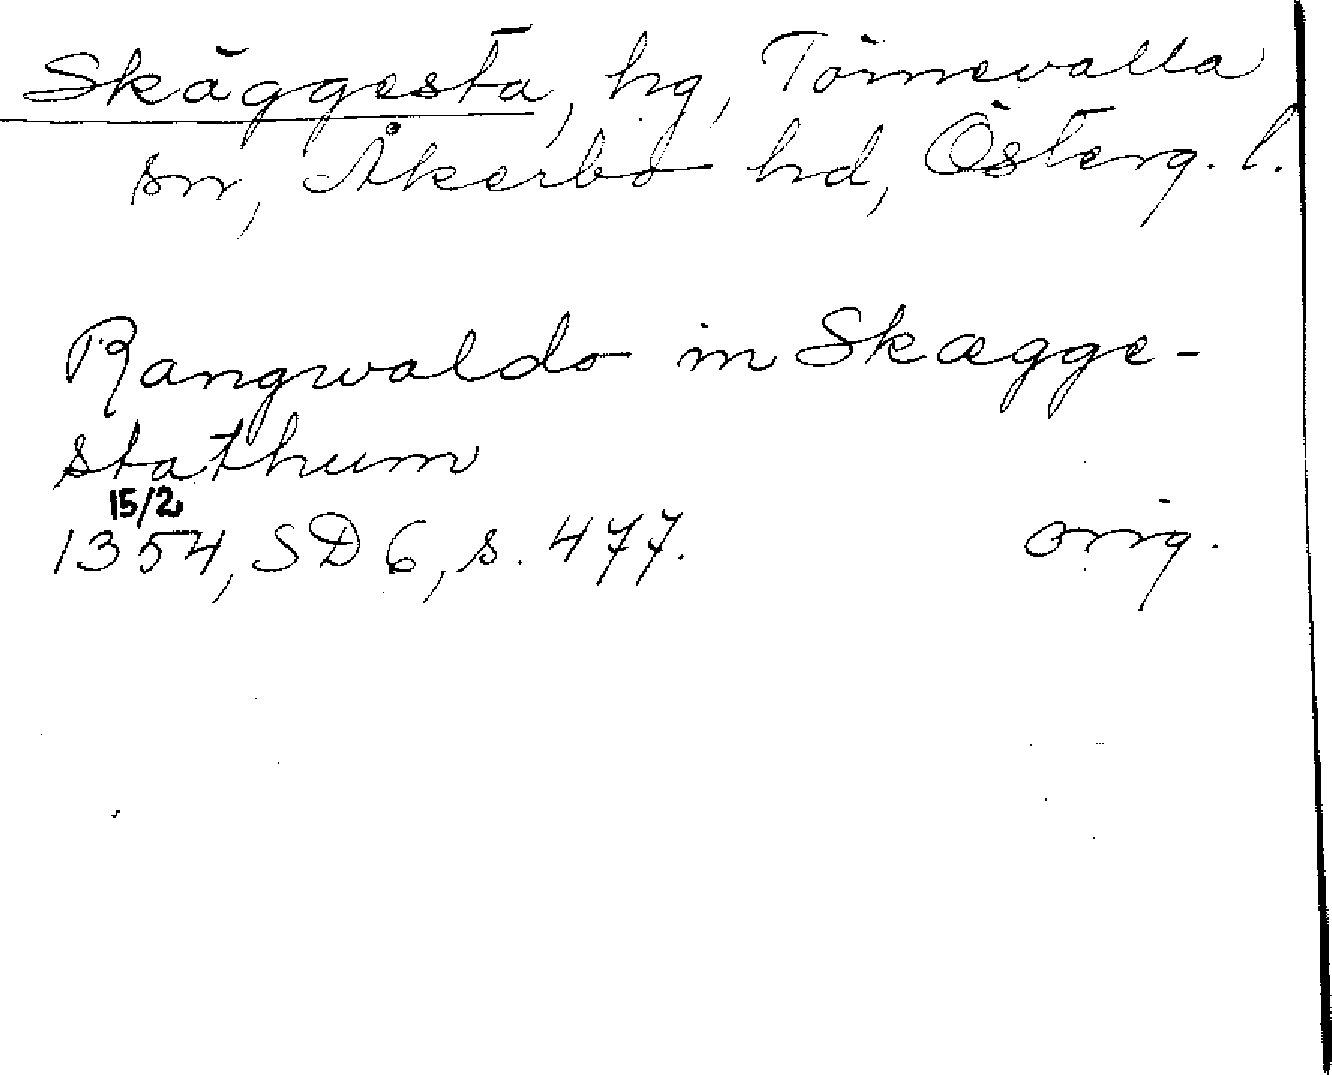 Skäggesta, hg, Törnevalla
sn, Åkerbo hd, Österg. l.
Rangwaldo in Skægge-
stathum
15/2
1354, SD 6, s. 477. orig.